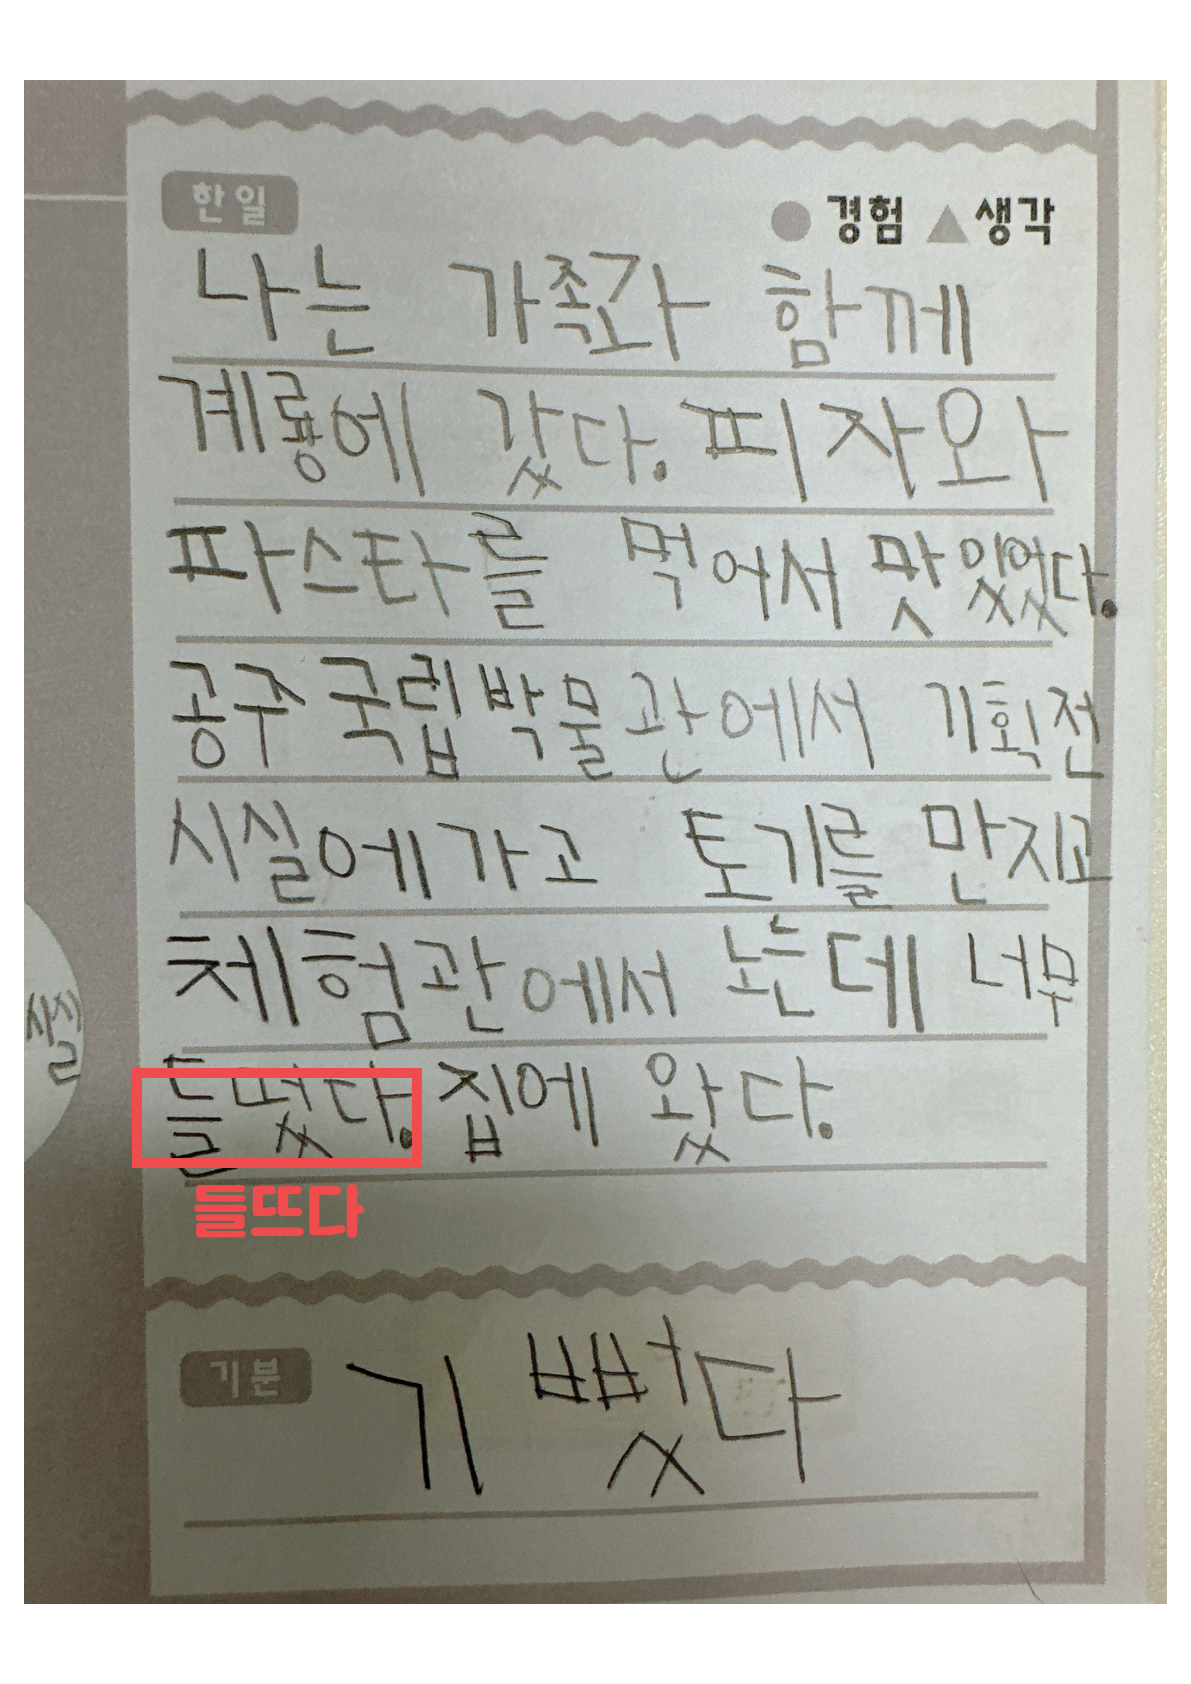 한일
● 경험 ▲ 생각
나는 가족과 함께
계룡에 갔다. 피자와
파스타를 먹어서 맛있었다.
공주국립박물관에서 기획전
시실에가고 토기를 만지고
체험관에서 노는데 너무
들떴다. 집에 왔다.
들뜨다
사실
기분
기뻤다